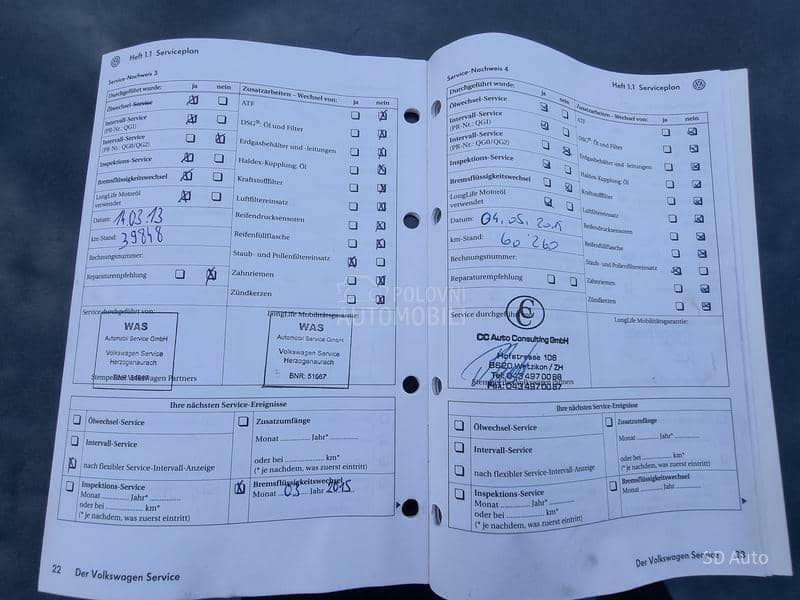 Heft 1.1 Serviceplan
Service-Nachweis 3
Durchgeführt wurde: ja nein
Ölwechsel-Service
Intervall-Service
(PR-Nr.: QG1)
Intervall-Service
(PR-Nr.: QG0/QG2)
Inspektions-Service
Bremsflüssigkeitswechsel
LongLife Motoröl
verwendet
Datum: 14.03.13
km-Stand: 39848
Rechnungsnummer:
Reparaturempfehlung
Zusatzarbeiten – Wechsel von: ja nein
ATF
DSG®: Öl und Filter
Erdgasbehälter und -leitungen
Haldex-Kupplung: Öl
Kraftstoffilter
Luftfiltereinsatz
Reifendrucksensoren
Reifenfüllflasche
Staub- und Pollenfiltereinsatz
Zahnriemen
Zündkerzen
Service durchgeführt von:
LongLife Mobilitätsgarantie:
WAS
Automobil Service GmbH
Volkswagen Service
Herzogenaurach
Stempel des Volkswagen Partners
WAS
Automobil Service GmbH
Volkswagen Service
Herzogenaurach
BNR: 51067
Ihre nächsten Service-Ereignisse
Ölwechsel-Service
Intervall-Service
nach flexibler Service-Intervall-Anzeige
Inspektions-Service
Monat ............ Jahr* ............
oder bei ............ km*
(* je nachdem, was zuerst eintritt)
Zusatzumfänge
Monat ............ Jahr* ............
oder bei ............ km*
(* je nachdem, was zuerst eintritt)
Bremsflüssigkeitswechsel
Monat 03 Jahr 2015
22 Der Volkswagen Service
Service-Nachweis 4
Heft 1.1 Serviceplan
Durchgeführt wurde: ja nein
Ölwechsel-Service
Intervall-Service
(PR-Nr.: QG1)
Intervall-Service
(PR-Nr.: QG0/QG2)
Inspektions-Service
Bremsflüssigkeitswechsel
LongLife Motoröl
verwendet
Datum: 04.05.2015
km-Stand: 60 260
Rechnungsnummer:
Reparaturempfehlung
Zusatzarbeiten – Wechsel von: ja nein
ATF
DSG®: Öl und Filter
Erdgasbehälter und -leitungen
Haldex-Kupplung: Öl
Kraftstoffilter
Luftfiltereinsatz
Reifendrucksensoren
Reifenfüllflasche
Staub- und Pollenfiltereinsatz
Zahnriemen
Zündkerzen
Service durchgeführt von:
LongLife Mobilitätsgarantie:
CC Auto Consulting GmbH
Hofstrasse 106
8620 Wetzikon / ZH
Tel. 043 497 00 88
Fax. 043 497 00 87
Stempel des Volkswagen Partners
Ihre nächsten Service-Ereignisse
Ölwechsel-Service
Intervall-Service
nach flexibler Service-Intervall-Anzeige
Inspektions-Service
Monat ............ Jahr* ............
oder bei ............ km*
(* je nachdem, was zuerst eintritt)
Zusatzumfänge
Monat ............ Jahr* ............
oder bei ............ km*
(* je nachdem, was zuerst eintritt)
Bremsflüssigkeitswechsel
Monat ............ Jahr ............
Der Volkswagen Service 23
POLOVNI
AUTOMOBILI
SD Auto